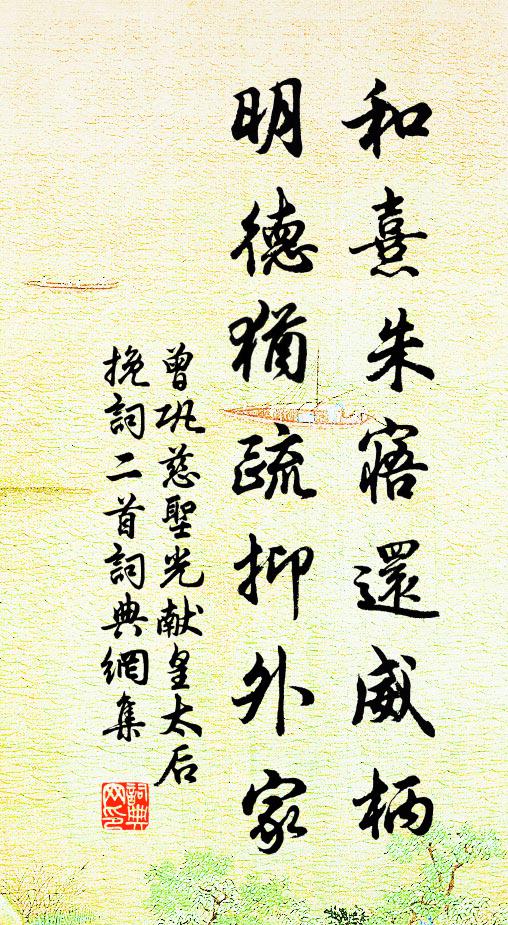 和熹朱寤還威柄
明德猶疏抑外家
曾巩慈聖光献皇太后
挽詞二首詞典網集
詞典网印